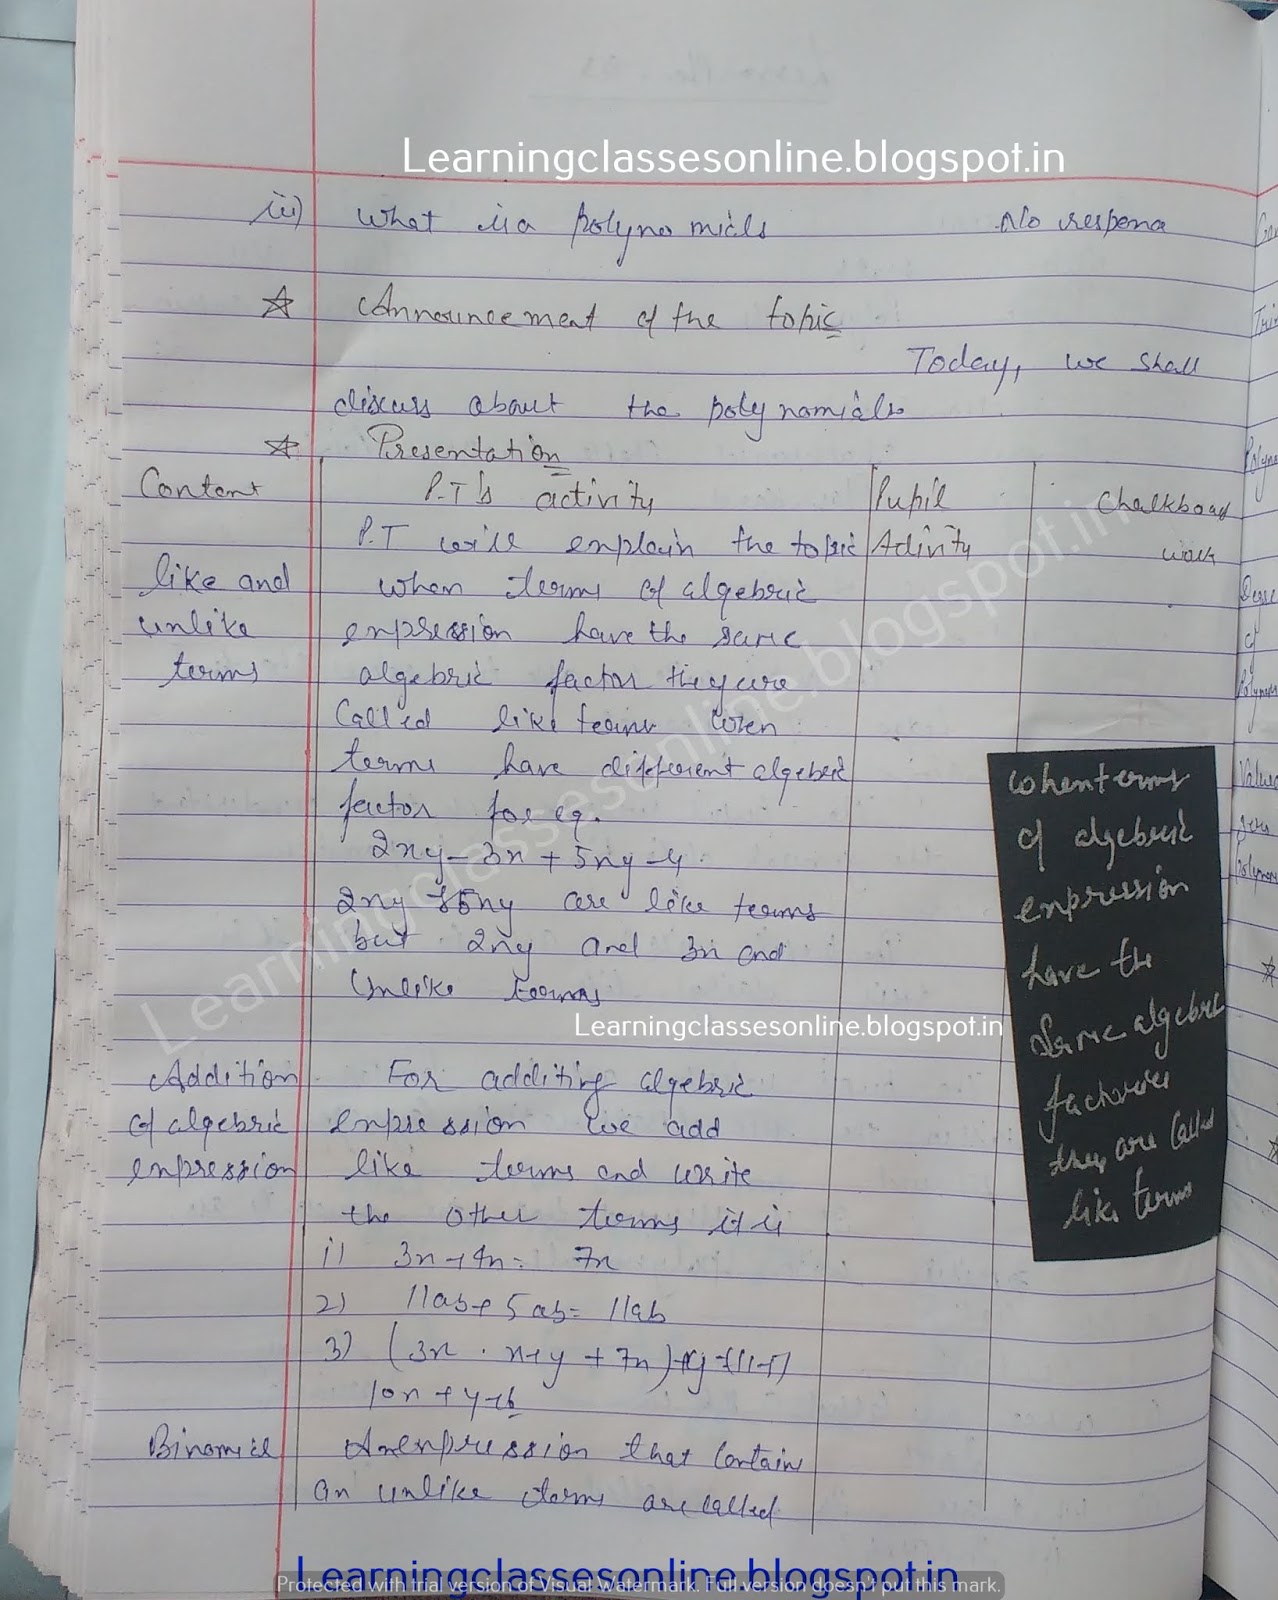 Learningclassesonline.blogspot.in
iii) What is a polynomials No respena
Announcement of the topic
Today, we shall
discuss about the polynomials
Presentation
Content P.T's activity Pupil Activity Chalkboad work
P.T will explain the topic
like and unlike terms
when terms of algebric
expression have the same
algebric factor they are
Called like terms when
terms have different algebric
factor for eg.
2xy - 3x + 5xy - 4
2xy & 5xy are like terms
but 2xy and 3x and
Unlike terms
When terms
of algebric
expression
have the
Same algebric
they are Called
like terms
Learningclassesonline.blogspot.in
Addition of algebric expression
For additing algebric
expression we add
like terms and write
the other terms it is
1) 3x + 4x = 7x
2) 11ab + 5ab = 11ab
3) (3x . x + y + 7x)
10x + y
Binomial An expression that Contain
an unlike terms are called
Learningclassesonline.blogspot.in
Learningclassesonline.blogspot.in
Protected with trial version of Visual Watermark. Full version doesn't put this mark.